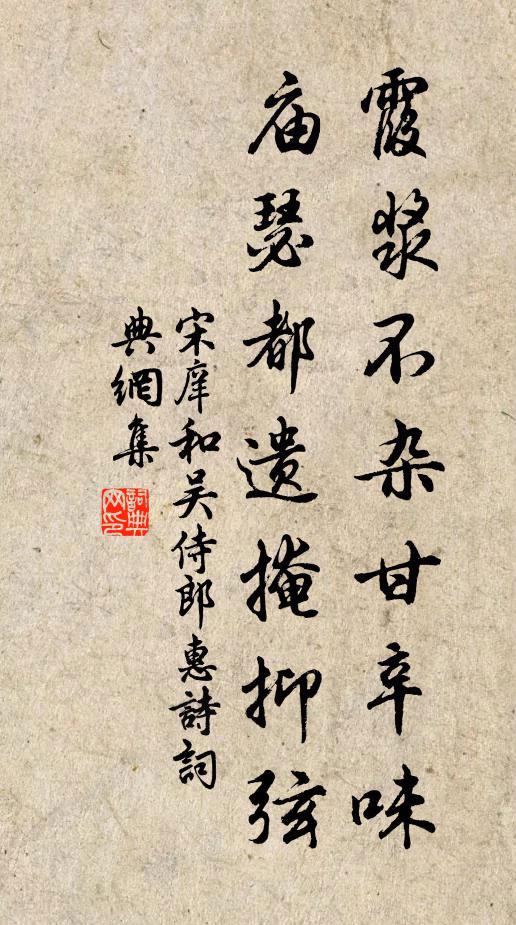 霞浆不杂甘辛味
庙瑟都遗掩抑弦
宋庠和吴侍郎惠詩詞
典網集
詞典网印